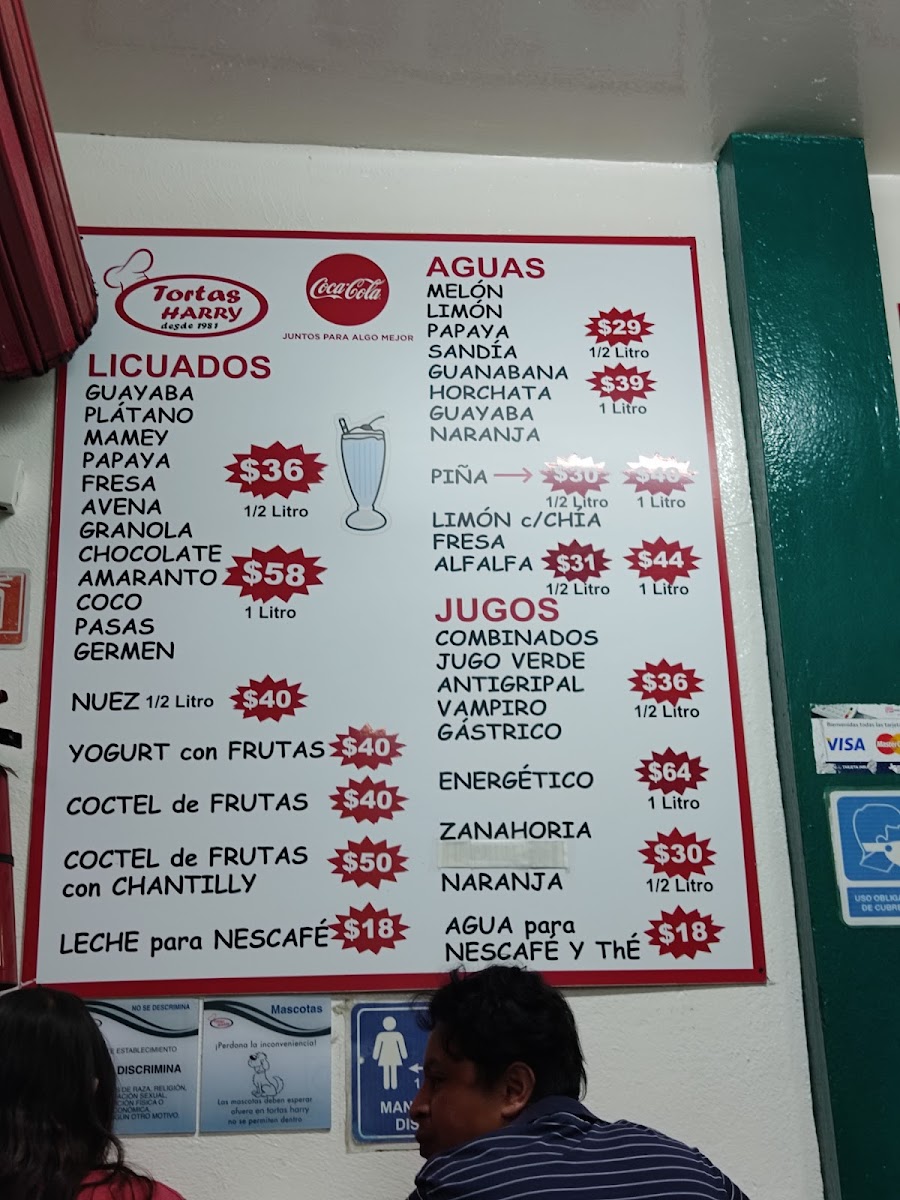 Tortas
HARRY
desde 1981
Coca-Cola
JUNTOS PARA ALGO MEJOR
LICUADOS
GUAYABA
PLÁTANO
MAMEY
PAPAYA
FRESA
AVENA
GRANOLA
CHOCOLATE
AMARANTO
COCO
PASAS
GERMEN
$36
1/2 Litro
$58
1 Litro
NUEZ 1/2 Litro $40
YOGURT con FRUTAS $40
COCTEL de FRUTAS $40
COCTEL de FRUTAS
con CHANTILLY $50
LECHE para NESCAFÉ $18
AGUAS
MELÓN
LIMÓN
PAPAYA
SANDÍA
GUANABANA
HORCHATA
GUAYABA
NARANJA
$29
1/2 Litro
$39
1 Litro
PIÑA $30 $40
1/2 Litro 1 Litro
LIMÓN c/CHÍA
FRESA
ALFALFA $31 $44
1/2 Litro 1 Litro
JUGOS
COMBINADOS
JUGO VERDE
ANTIGRIPAL
VAMPIRO
GÁSTRICO
$36
1/2 Litro
ENERGÉTICO $64
1 Litro
ZANAHORIA
NARANJA
$30
1/2 Litro
AGUA para
NESCAFÉ Y ThÉ $18
VISA
NO SE DISCRIMINA
ESTABLECIMIENTO
DISCRIMINA
DE RAZA, RELIGIÓN,
Mascotas
¡Perdona la inconveniencia!
Las mascotas deben esperar
afuera en tortas harry
no se permiten dentro
MAN
DIS
USO OBLIGA
DE CUBRE